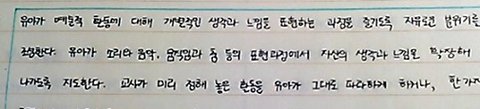 유아가 예술적 활동에 대해 개별적인 생각과 느낌을 표현하는 과정을 즐기도록 자유로운 분위기를
조성한다. 유아가 소리와 음악, 움직임과 춤 등의 표현과정에서 자신의 생각과 느낌을 확장해
나가도록 지도한다. 교사가 미리 정해 놓은 활동을 유아가 그대로 따라하게 하거나, 한 가지